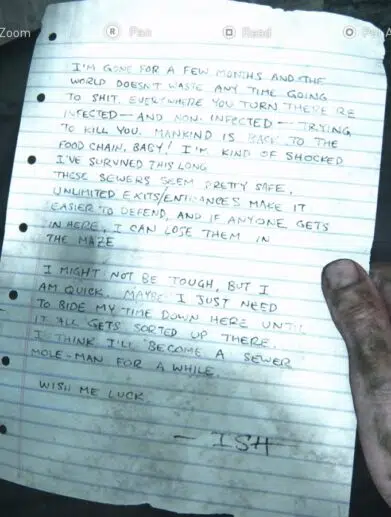 Zoom
R Pan
Read
Pa
I'M GONE FOR A FEW MONTHS AND THE
WORLD DOESN'T WASTE ANY TIME GOING
TO SHIT. EVERYWHERE YOU TURN THERE RE
INFECTED - AND NON-INFECTED - TRYING
TO KILL YOU. MANKIND IS BACK TO THE
FOOD CHAIN, BABY! I'M KIND OF SHOCKED
I'VE SURVIVED THIS LONG
THESE SEWERS SEEM PRETTY SAFE.
UNLIMITED EXITS/ENTRANCES MAKE IT
EASIER TO DEFEND, AND IF ANYONE GETS
IN HERE, I CAN LOSE THEM IN
THE MAZE
I MIGHT NOT BE TOUGH, BUT I
AM QUICK. MAYBE I JUST NEED
TO BIDE MY TIME DOWN HERE UNTIL
IT ALL GETS SORTED UP THERE.
I THINK I'LL BECOME A SEWER
MOLE-MAN FOR A WHILE.
WISH ME LUCK.
- ISH